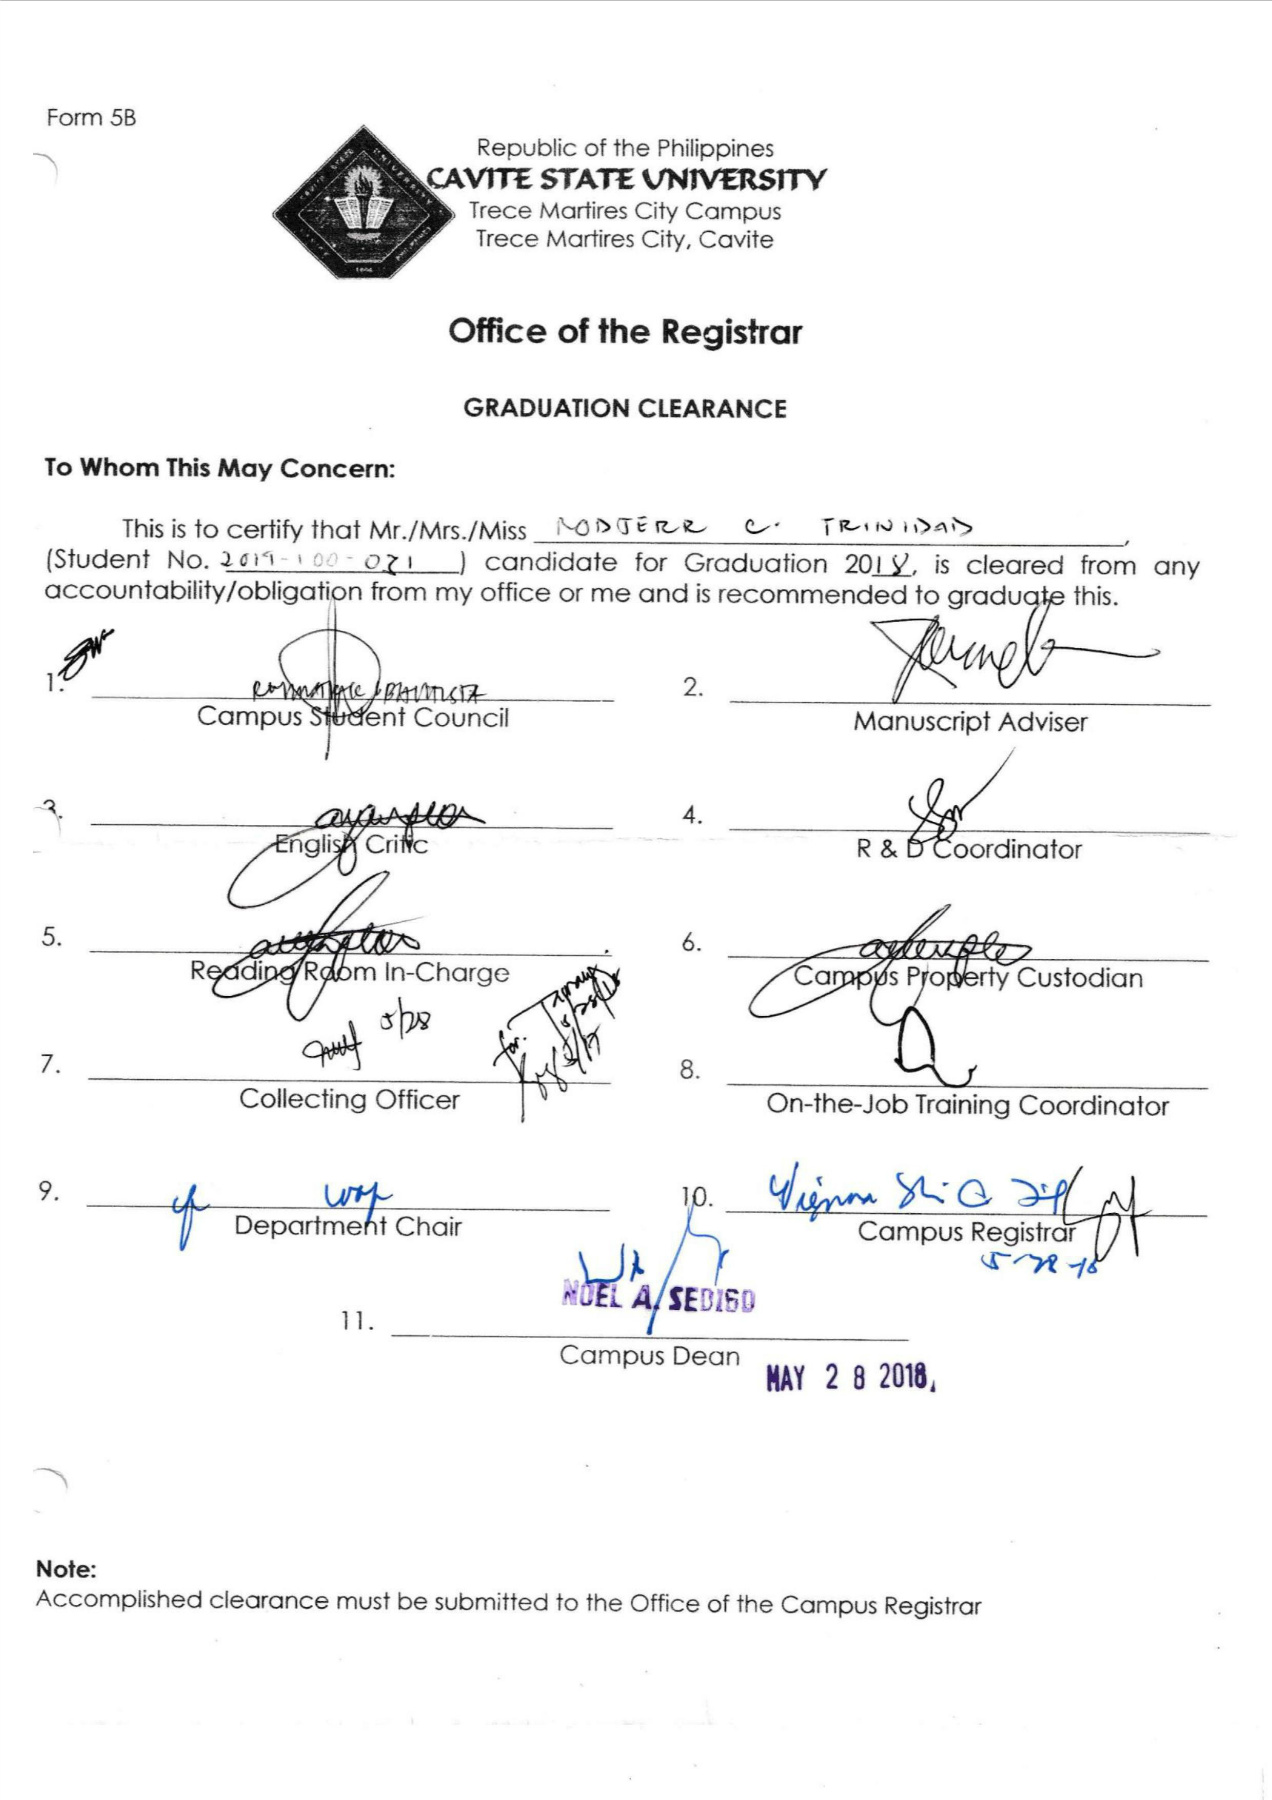 Form 5B
Republic of the Philippines
CAVITE STATE UNIVERSITY
Trece Martires City Campus
Trece Martires City, Cavite
Office of the Registrar
GRADUATION CLEARANCE
To Whom This May Concern:
This is to certify that Mr./Mrs./Miss RODJERR C. TRINIDAD,
(Student No. 2019-100-071) candidate for Graduation 2018, is cleared from any
accountability/obligation from my office or me and is recommended to graduate this.
1. BAUTISTA
Campus Student Council
2.
Manuscript Adviser
3.
English Critic
4.
R & D Coordinator
5.
Reading Room In-Charge
6.
Campus Property Custodian
7. 5/28
Collecting Officer
8.
On-the-Job Training Coordinator
9.
Department Chair
10.
Campus Registrar
5-28-18
NOEL A. SEDISO
11.
Campus Dean
MAY 28 2018
Note:
Accomplished clearance must be submitted to the Office of the Campus Registrar